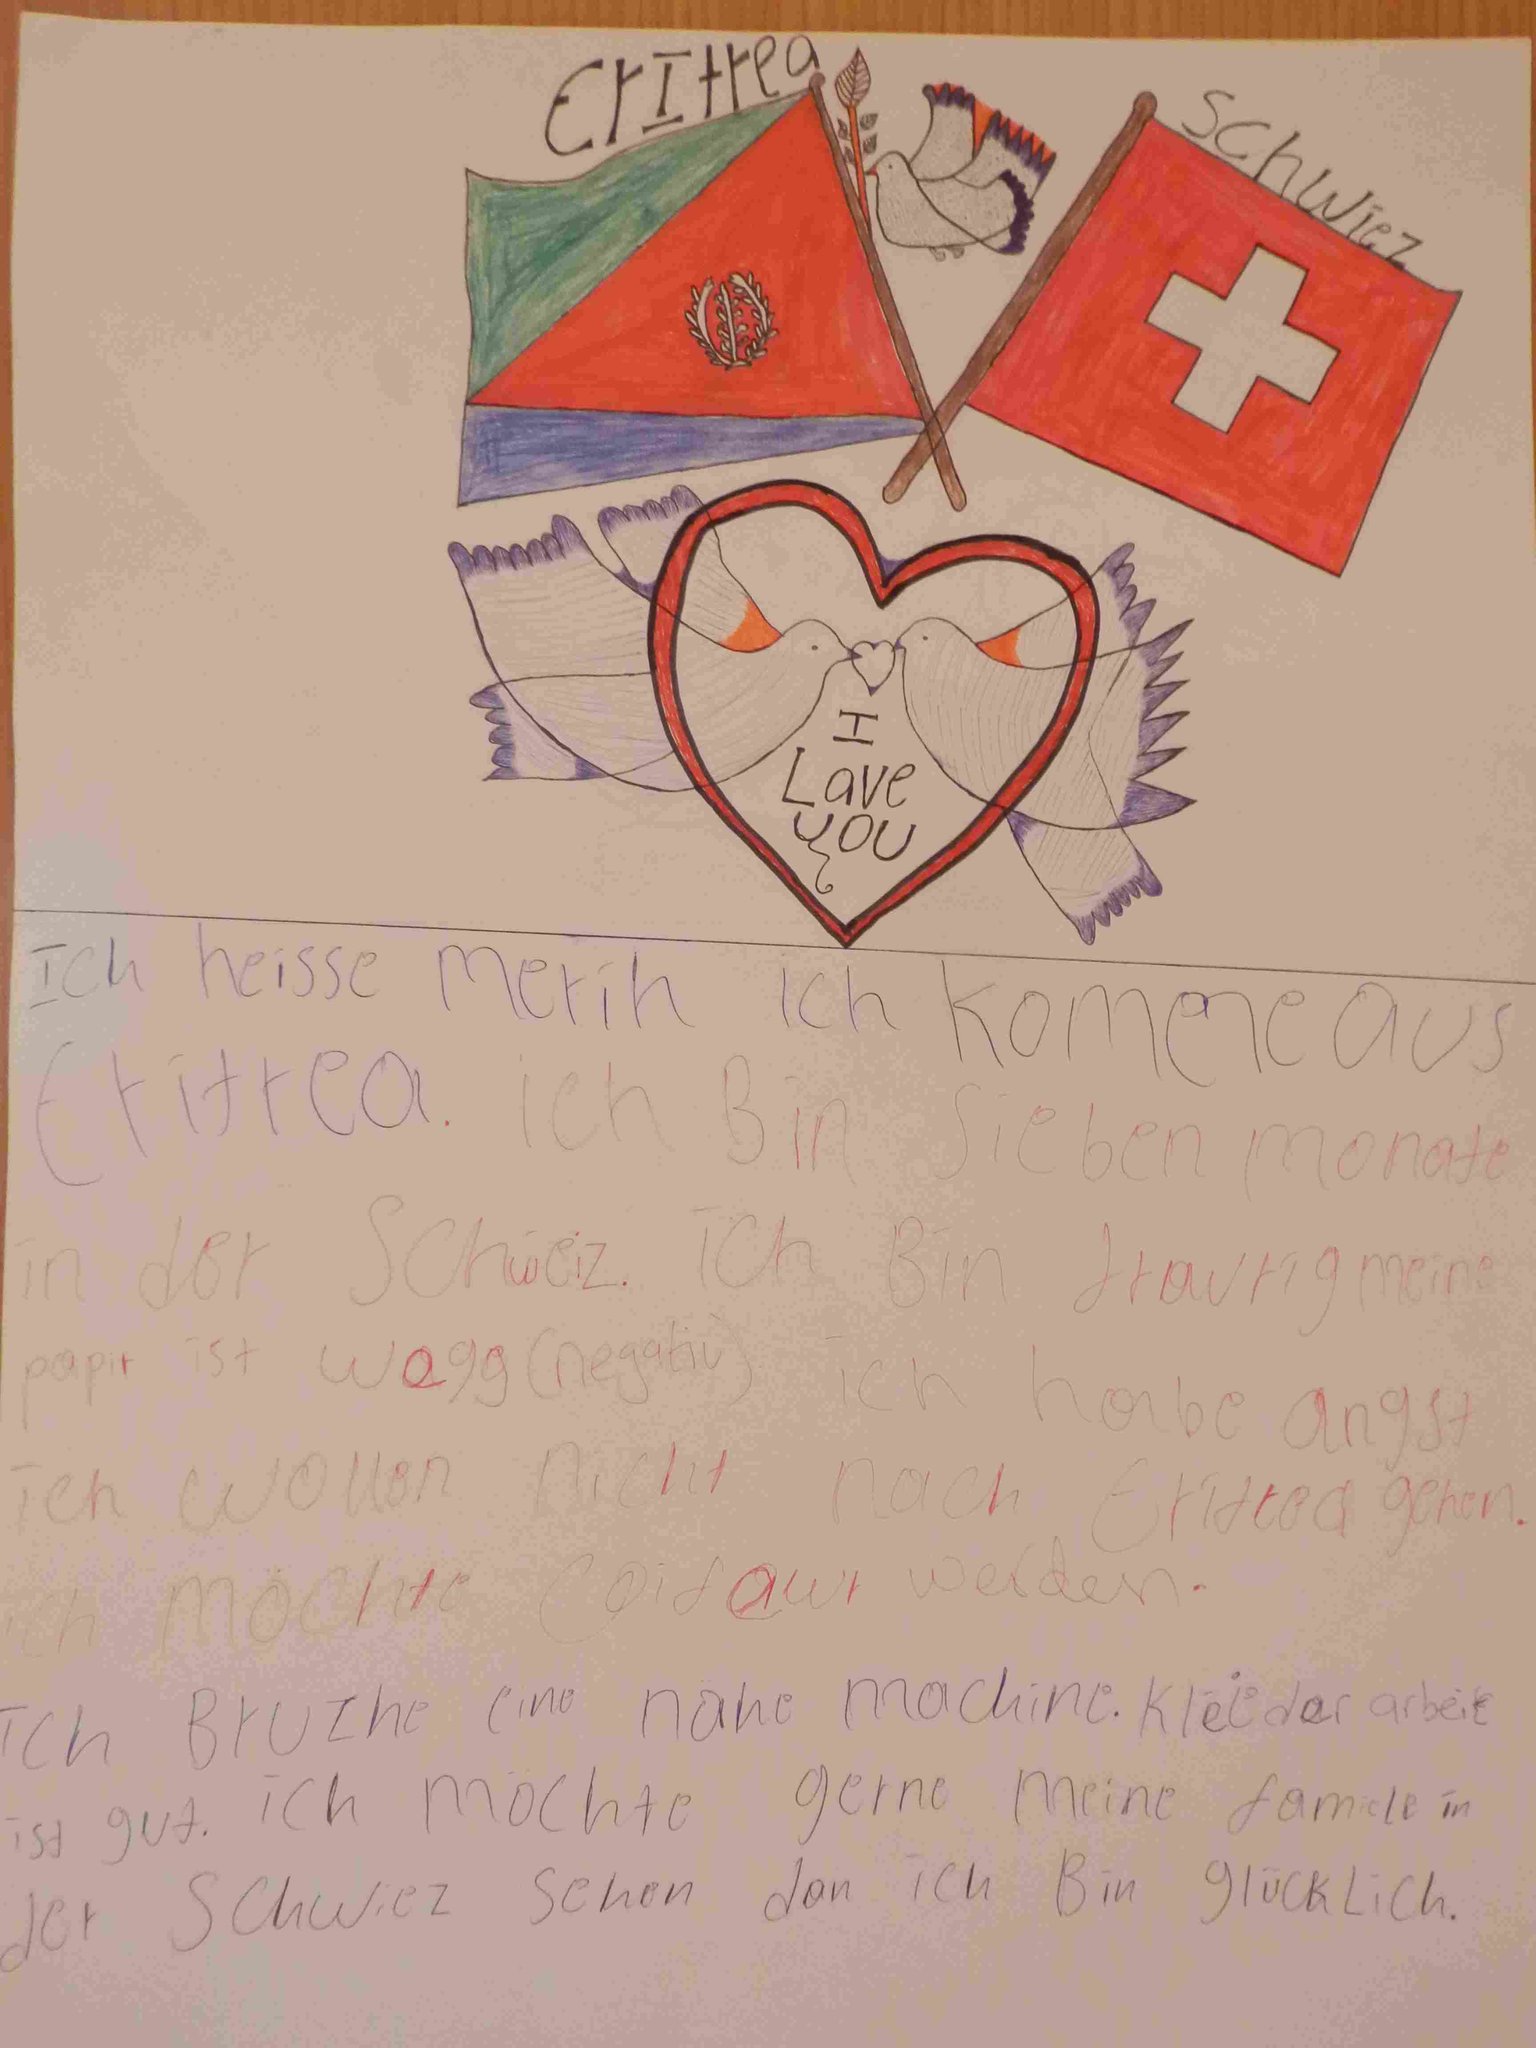 Eritrea
Schwiez
I
Lave
you
Ich heisse merih ich komme aus
Eritrea. ich Bin sieben monate
in der Schweiz. ich Bin traurig meine
papir ist wagg (negativ) ich habe angst
ich wollen nicht nach Eritrea gehen.
ich möchte werden.
ich Bruzhe eine nähe machine. Kleider arbeit
ist gut. ich möchte gerne meine familie in
der Schwiez sehen dan ich Bin glücklich.